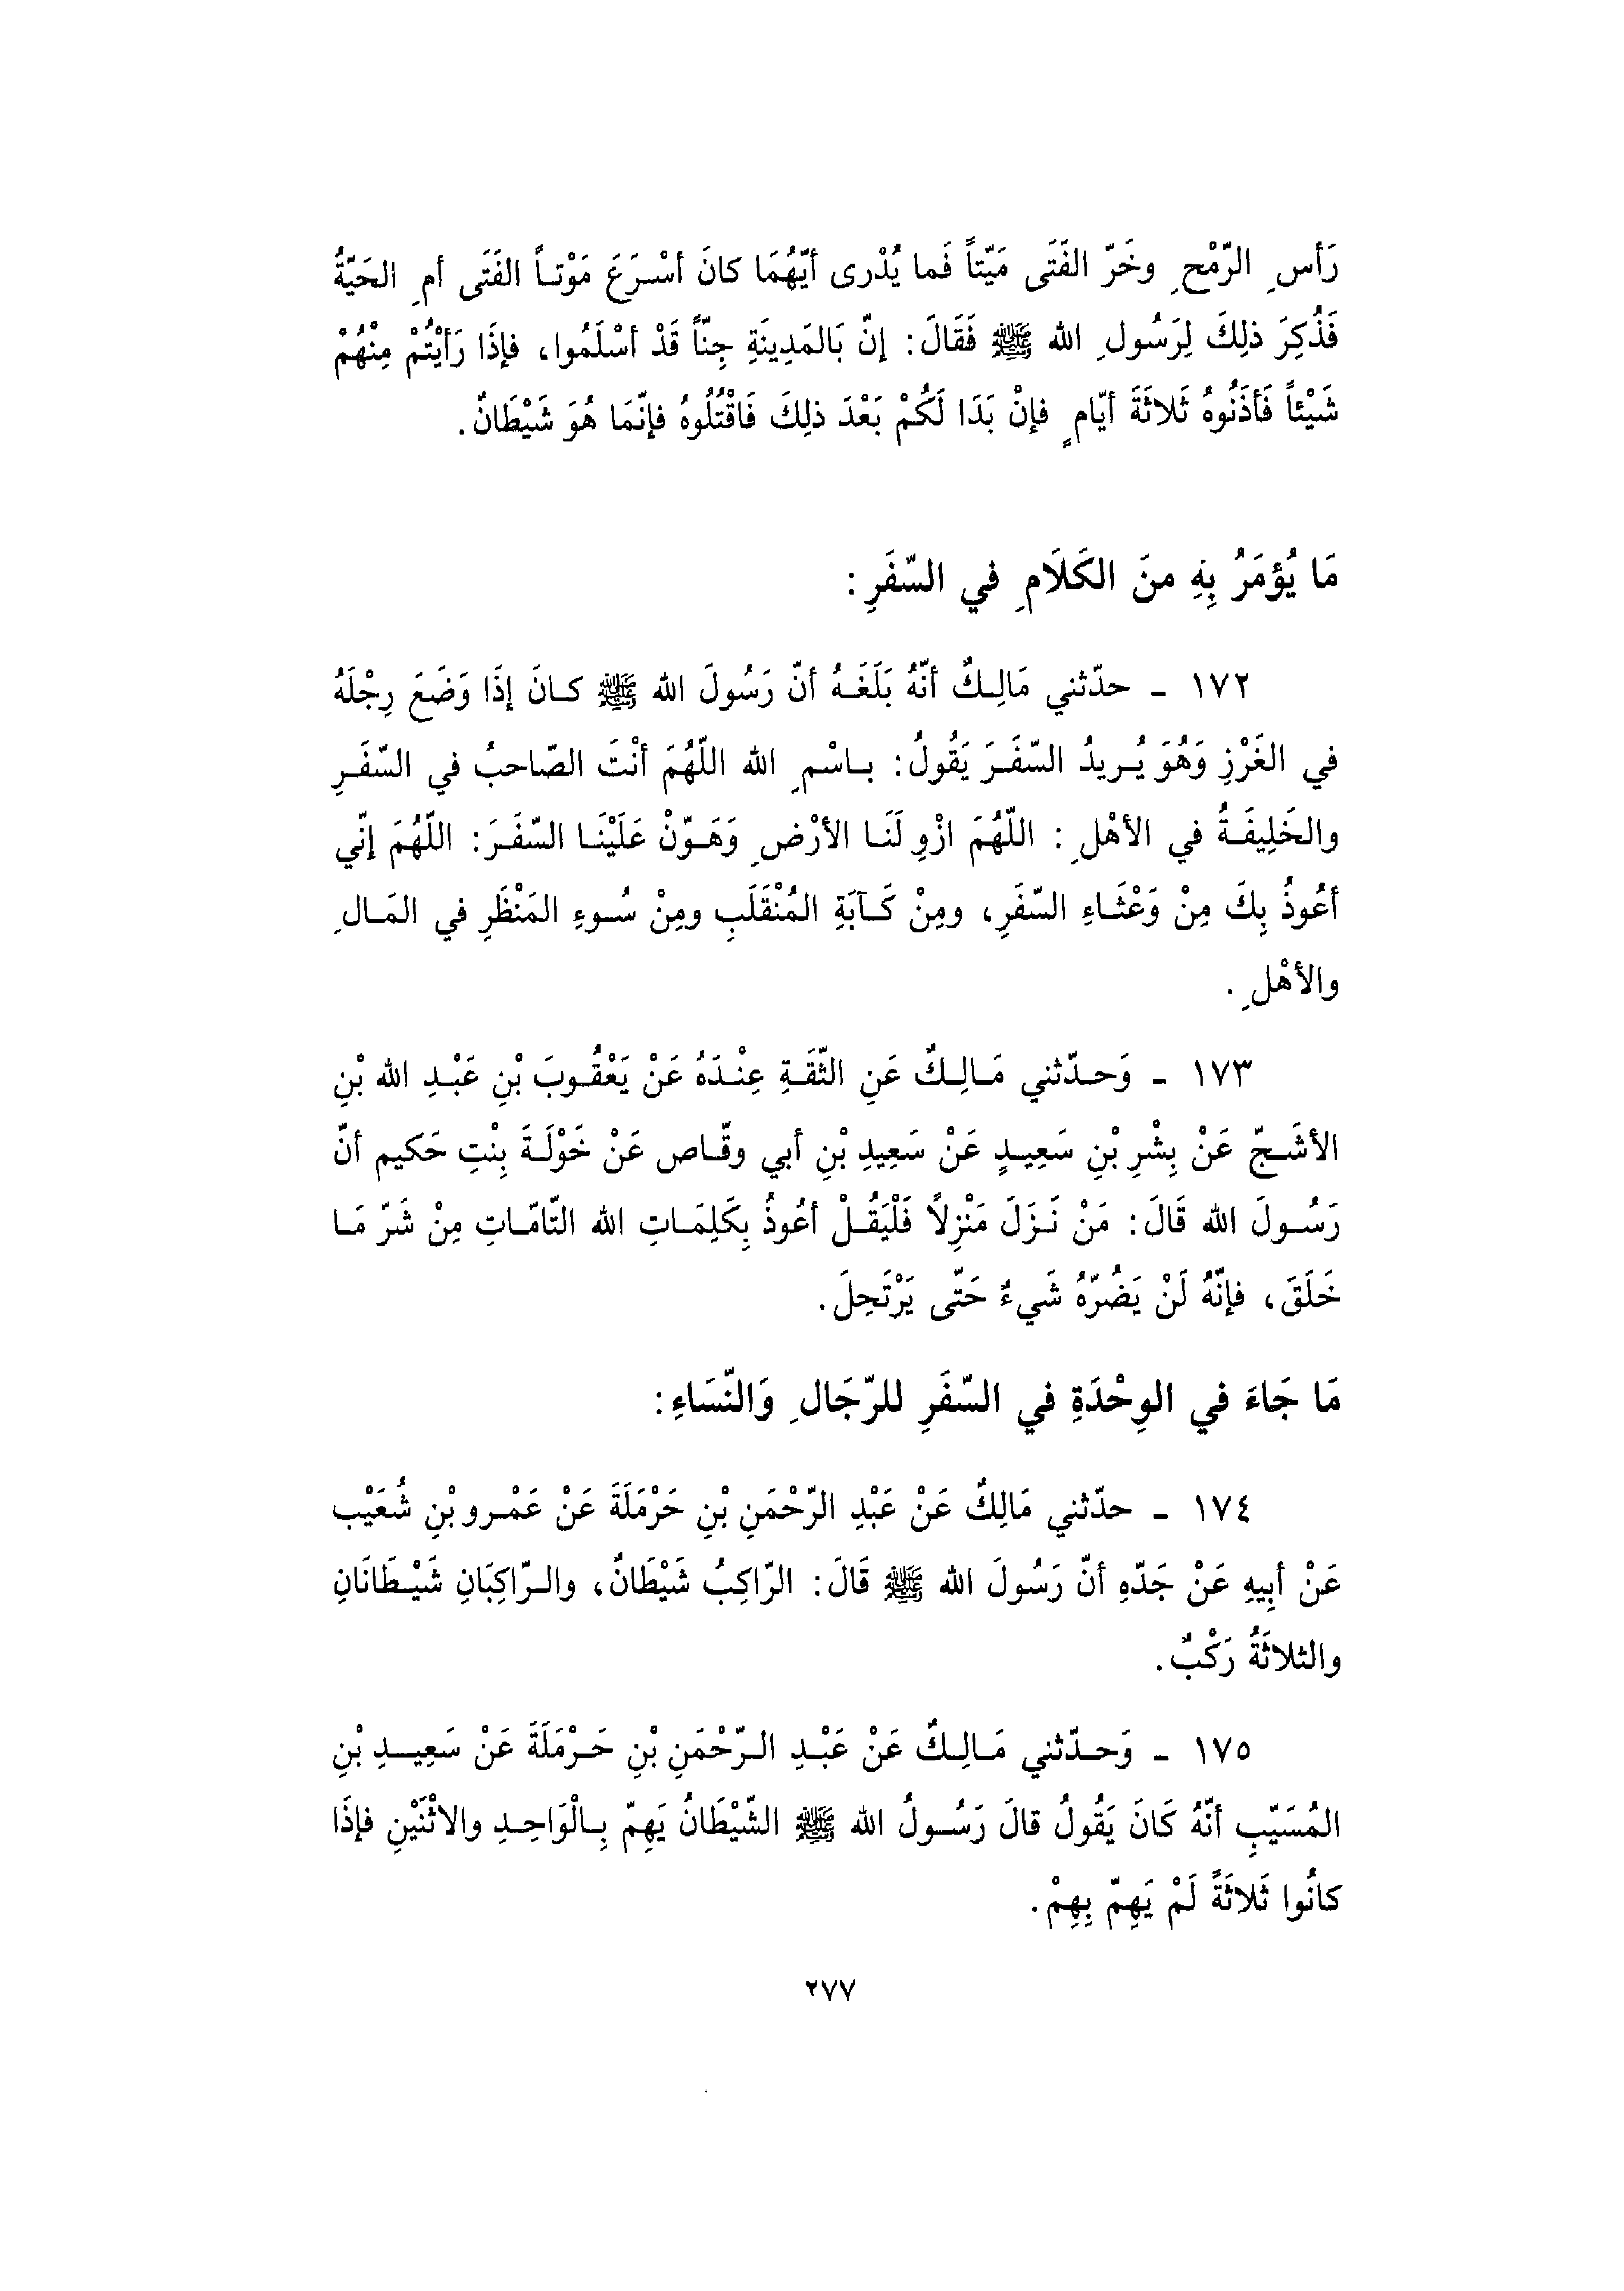 رَأسِ الرّمْحِ وخَرّ الفَتَى مَيّتاً فَما يُدْرى أيّهُمَا كانَ أسْرَعَ مَوْتاً الفَتَى أمِ الحَيّةُ
فَذُكِرَ ذلِكَ لِرَسُولِ الله ﷺ فَقَالَ: إنّ بَالمَدِينَةِ جِنّاً قَدْ أسْلَمُوا، فإذَا رَأيْتُمْ مِنْهُمْ
شَيْئاً فَأذَنُوهُ ثَلاثَةَ أيّامٍ فإنْ بَدَا لَكُمْ بَعْدَ ذلِكَ فَاقْتُلُوهُ فإنّمَا هُوَ شَيْطَانٌ.
مَا يُؤمَرُ بِهِ منَ الكَلَامِ في السّفَرِ:
١٧٢ ـ حدّثني مَالِكٌ أنّهُ بَلَغَهُ أنّ رَسُولَ الله ﷺ كانَ إذَا وَضَعَ رِجْلَهُ
في الغَرْزِ وَهُوَ يُريدُ السّفَرَ يَقُولُ: باسْمِ الله اللّهُمَ أنْتَ الصّاحبُ في السّفَرِ
والخَلِيفَةُ في الأهْلِ: اللّهُمَ ازْوِ لَنَا الأرْضِ وَهَوّنْ عَلَيْنَا السّفَرَ: اللّهُمَ إنّي
أعُوذُ بِكَ مِنْ وَعْثَاءِ السّفَرِ، ومِنْ كَآبَةِ المُنْقَلَبِ ومِنْ سُوءِ المَنْظَرِ في المَالِ
والأهْلِ.
١٧٣ ـ وَحدّثني مَالِكٌ عَنِ الثّقَةِ عِنْدَهُ عَنْ يَعْقُوبَ بْنِ عَبْدِ الله بْنِ
الأشَجّ عَنْ بِشْرِ بْنِ سَعِيدٍ عَنْ سَعِيدِ بْنِ أبي وقّاص عَنْ خَوْلَةَ بِنْتِ حَكيم أنّ
رَسُولَ الله قَالَ: مَنْ نَزَلَ مَنْزِلاً فَلْيَقُلْ أعُوذُ بِكَلِمَاتِ الله التّامّاتِ مِنْ شَرّ مَا
خَلَقَ، فإنّهُ لَنْ يَضُرّهُ شَيءٌ حَتّى يَرْتَحِلَ.
مَا جَاءَ في الوِحْدَةِ في السّفَرِ للرّجَالِ وَالنّسَاءِ:
١٧٤ ـ حدّثني مَالِكٌ عَنْ عَبْدِ الرّحْمَنِ بْنِ حَرْمَلَةَ عَنْ عَمْرو بْنِ شُعَيْب
عَنْ أبِيهِ عَنْ جَدّهِ أنّ رَسُولَ الله ﷺ قَالَ: الرّاكِبُ شَيْطَانٌ، والرّاكِبَانِ شَيْطَانَانِ
والثلاثَةُ رَكْبٌ.
١٧٥ ـ وَحدّثني مَالِكٌ عَنْ عَبْدِ الرّحْمَنِ بْنِ حَرْمَلَةَ عَنْ سَعِيدِ بْنِ
المُسَيّبِ أنّهُ كَانَ يَقُولُ قالَ رَسُولُ الله ﷺ الشّيْطَانُ يَهِمّ بِالْوَاحِدِ والاثْنَيْنِ فإذَا
كانُوا ثَلاثَةً لَمْ يَهِمّ بِهِمْ.
٢٧٧